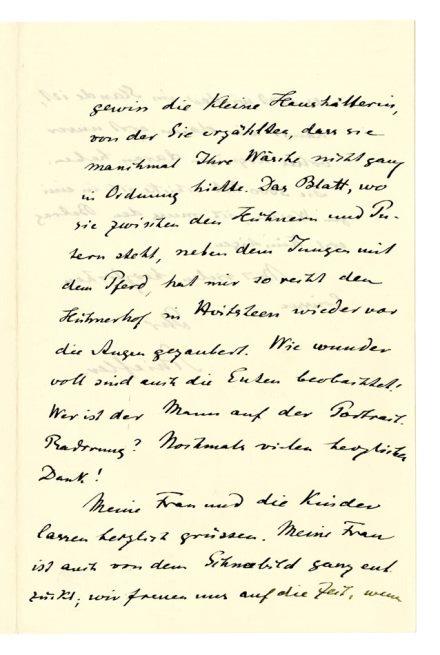 gewiss die kleine Haushälterin,
von der Sie erzählten, dass sie
manchmal Ihre Wäsche nicht ganz
in Ordnung hielte. Das Blatt, wo
sie zwischen den Hühnern und Pu-
tern steht, neben dem Jungen mit
dem Pferd, hat mir so recht den
Hühnerhof in wieder vor
die Augen gezaubert. Wie wunder
voll sind auch die Enten beobachtet.
Wer ist der Mann auf der Portrait-
Radierung? Nochmals vielen herzlichen
Dank!
Meine Frau und die Kinder
lassen herzlich grüssen. Meine Frau
ist auch von dem Schneebild ganz ent
zückt; wir freuen uns auf die Zeit, wenn